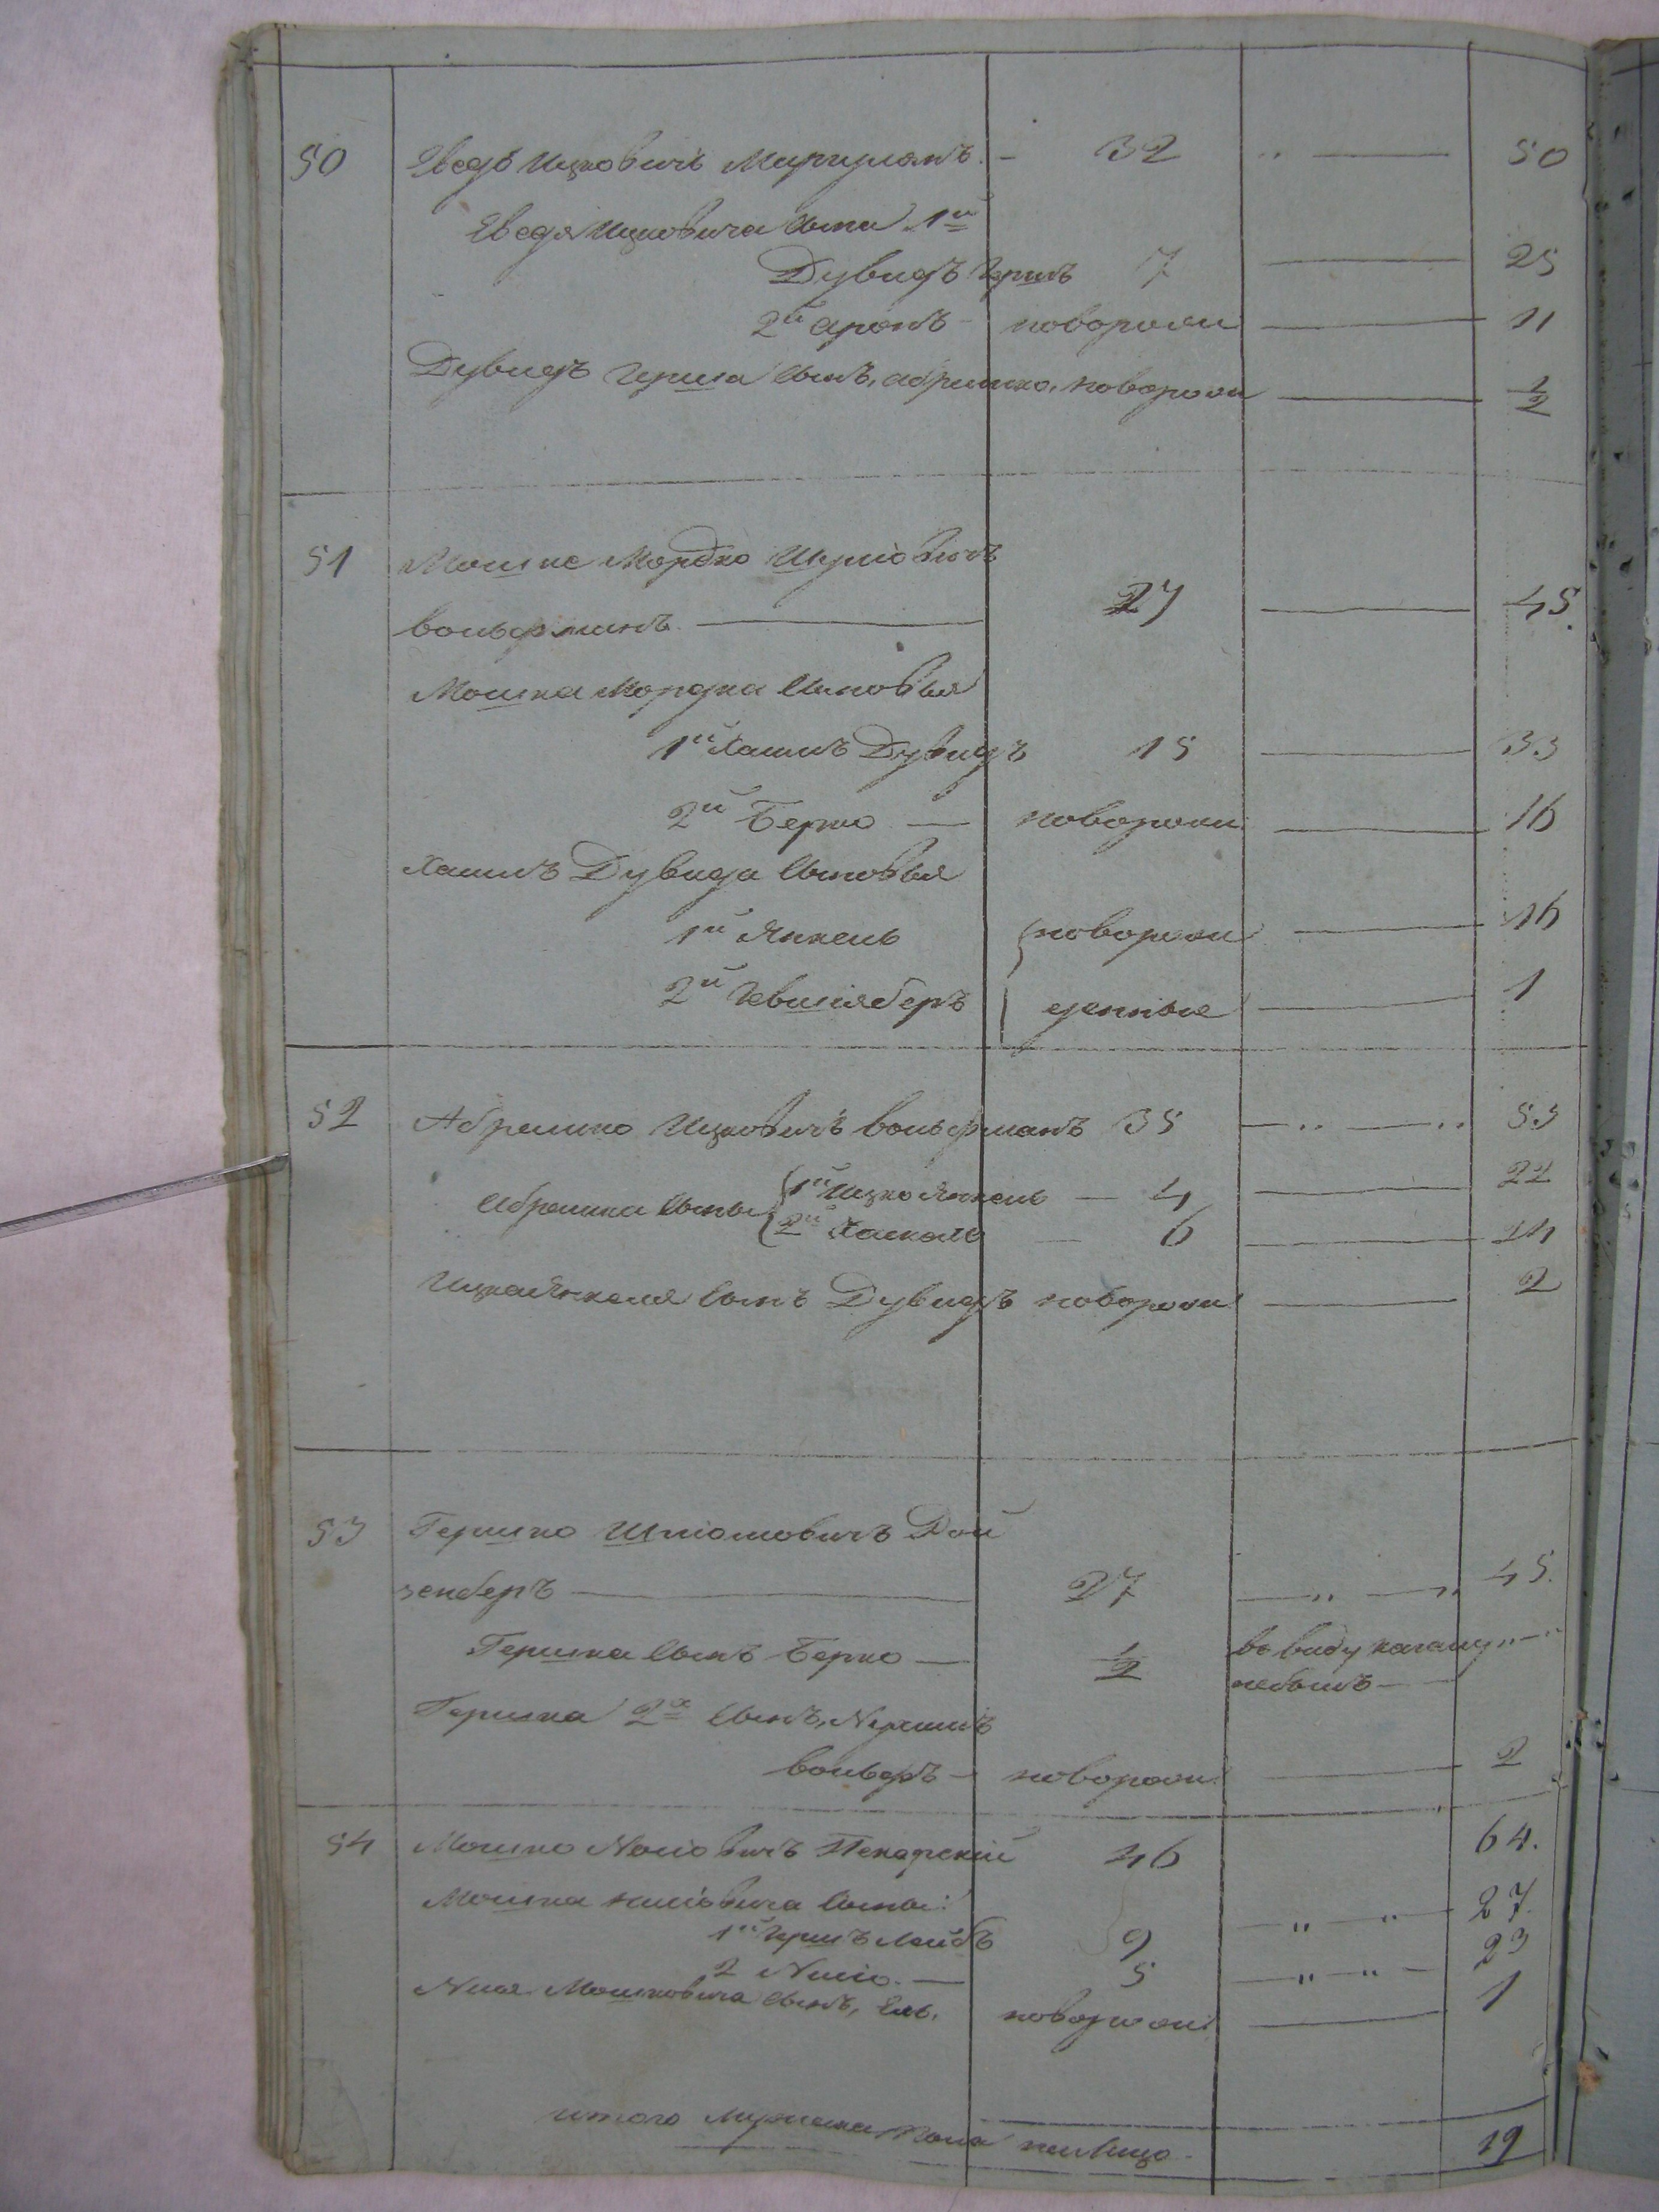 50 Іведь Ицковичъ - 32 " — 50
Іведя Ицковича сыны 1й
Дувидъ Гершъ 7 — 25
2й Аронъ - новорожд — 11
Дувидъ Герша сынъ, Абрамко, новорожд — 1/2
51 Мошко Мордко Шулiовичъ
Вольфманъ — 27 — 45.
Мошка Мордка сыновья
1й Хаимъ Дувидъ 15 — 33
2й Берко — новорожд — 16
Хаимъ Дувида сыновья
1й Янкель новорож — 16
2й денные — 1
52 Абрамко Ицковичъ Вольфманъ 35 — " — " 53
Абрамка сыны 1й Ицко Янкель — 4 — 22
2й Хаскель — 6 — 24
Ицка Янкеля сынъ Дувидъ новорожд — 2
53 Гершко Шлiомовичъ Дой
зенберъ — 27 — " — " 45.
Гершка сынъ Берко — 1/2 въ виду кагалу " — "
небылъ —
Гершка 2й сынъ, Нухимъ
Вольфъ — новорожд — 2
54 Мошко Нисiовичъ Пекарскiй 46 64.
Мошка Нисiовича сыны:
1й Гершъ Лейбъ 9 — " — " — 27.
2 Нисiо. — 5 — " — " — 23
Нися Мошковича сынъ, Ель. новорожд — 1
итого мужеска пола налицо 19